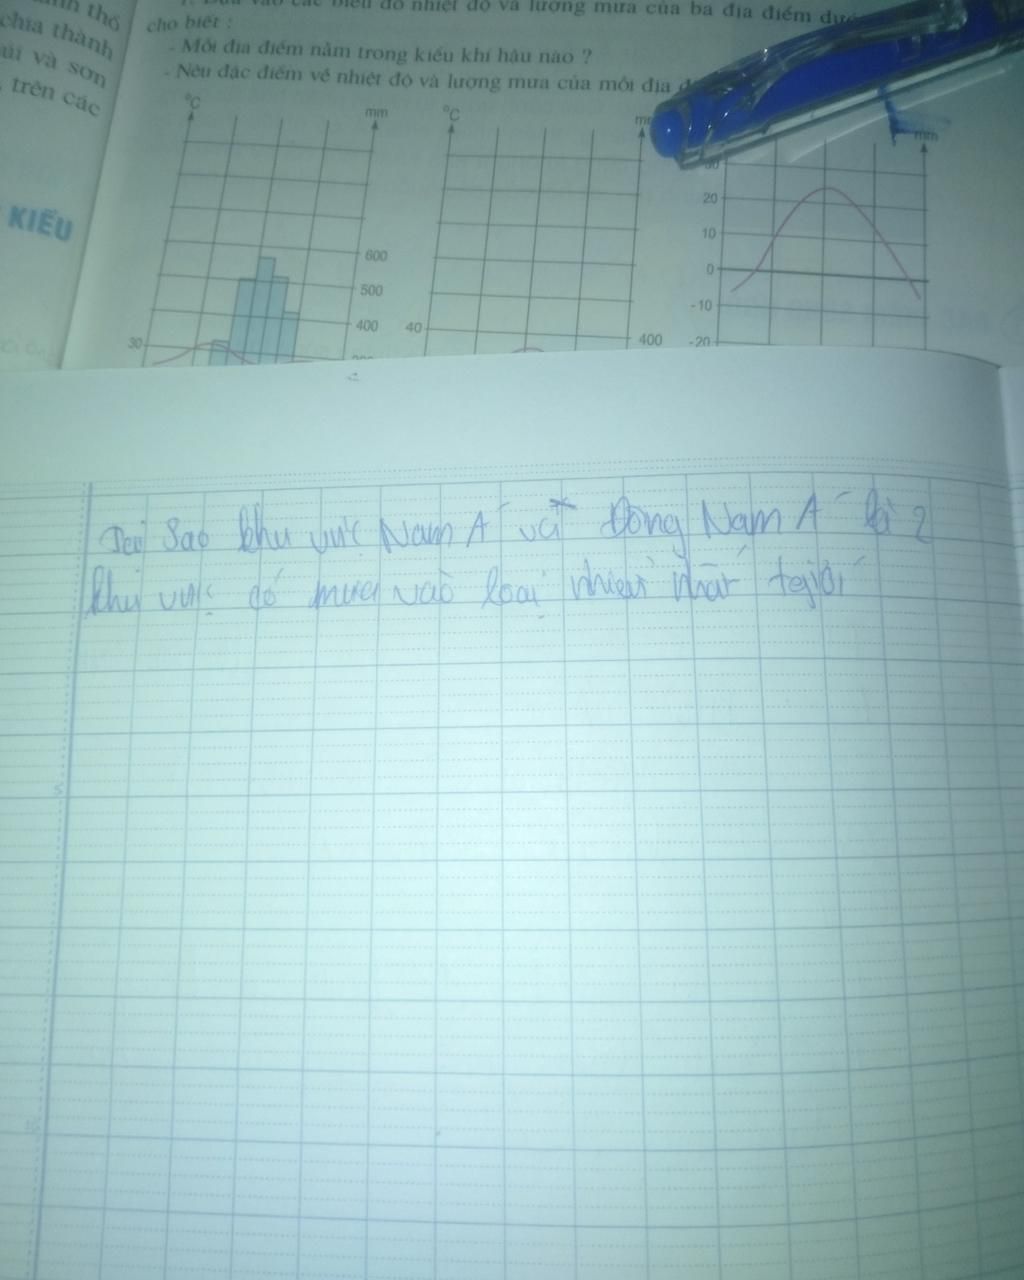 chia thành
úi và sơn
trên các
KIỂU
nhiệt độ và lượng mưa của ba địa điểm
cho biết :
- Mỗi địa điểm nằm trong kiểu khí hậu nào ?
- Nêu đặc điểm về nhiệt độ và lượng mưa của mỗi địa
°C mm °C mm
20
10
0
-10
-20
600
500
400
30
40
400
Tại sao khu vực Nam Á và Đông Nam Á là 2
khu vực có mưa vào loại nhiều nhất tgiới